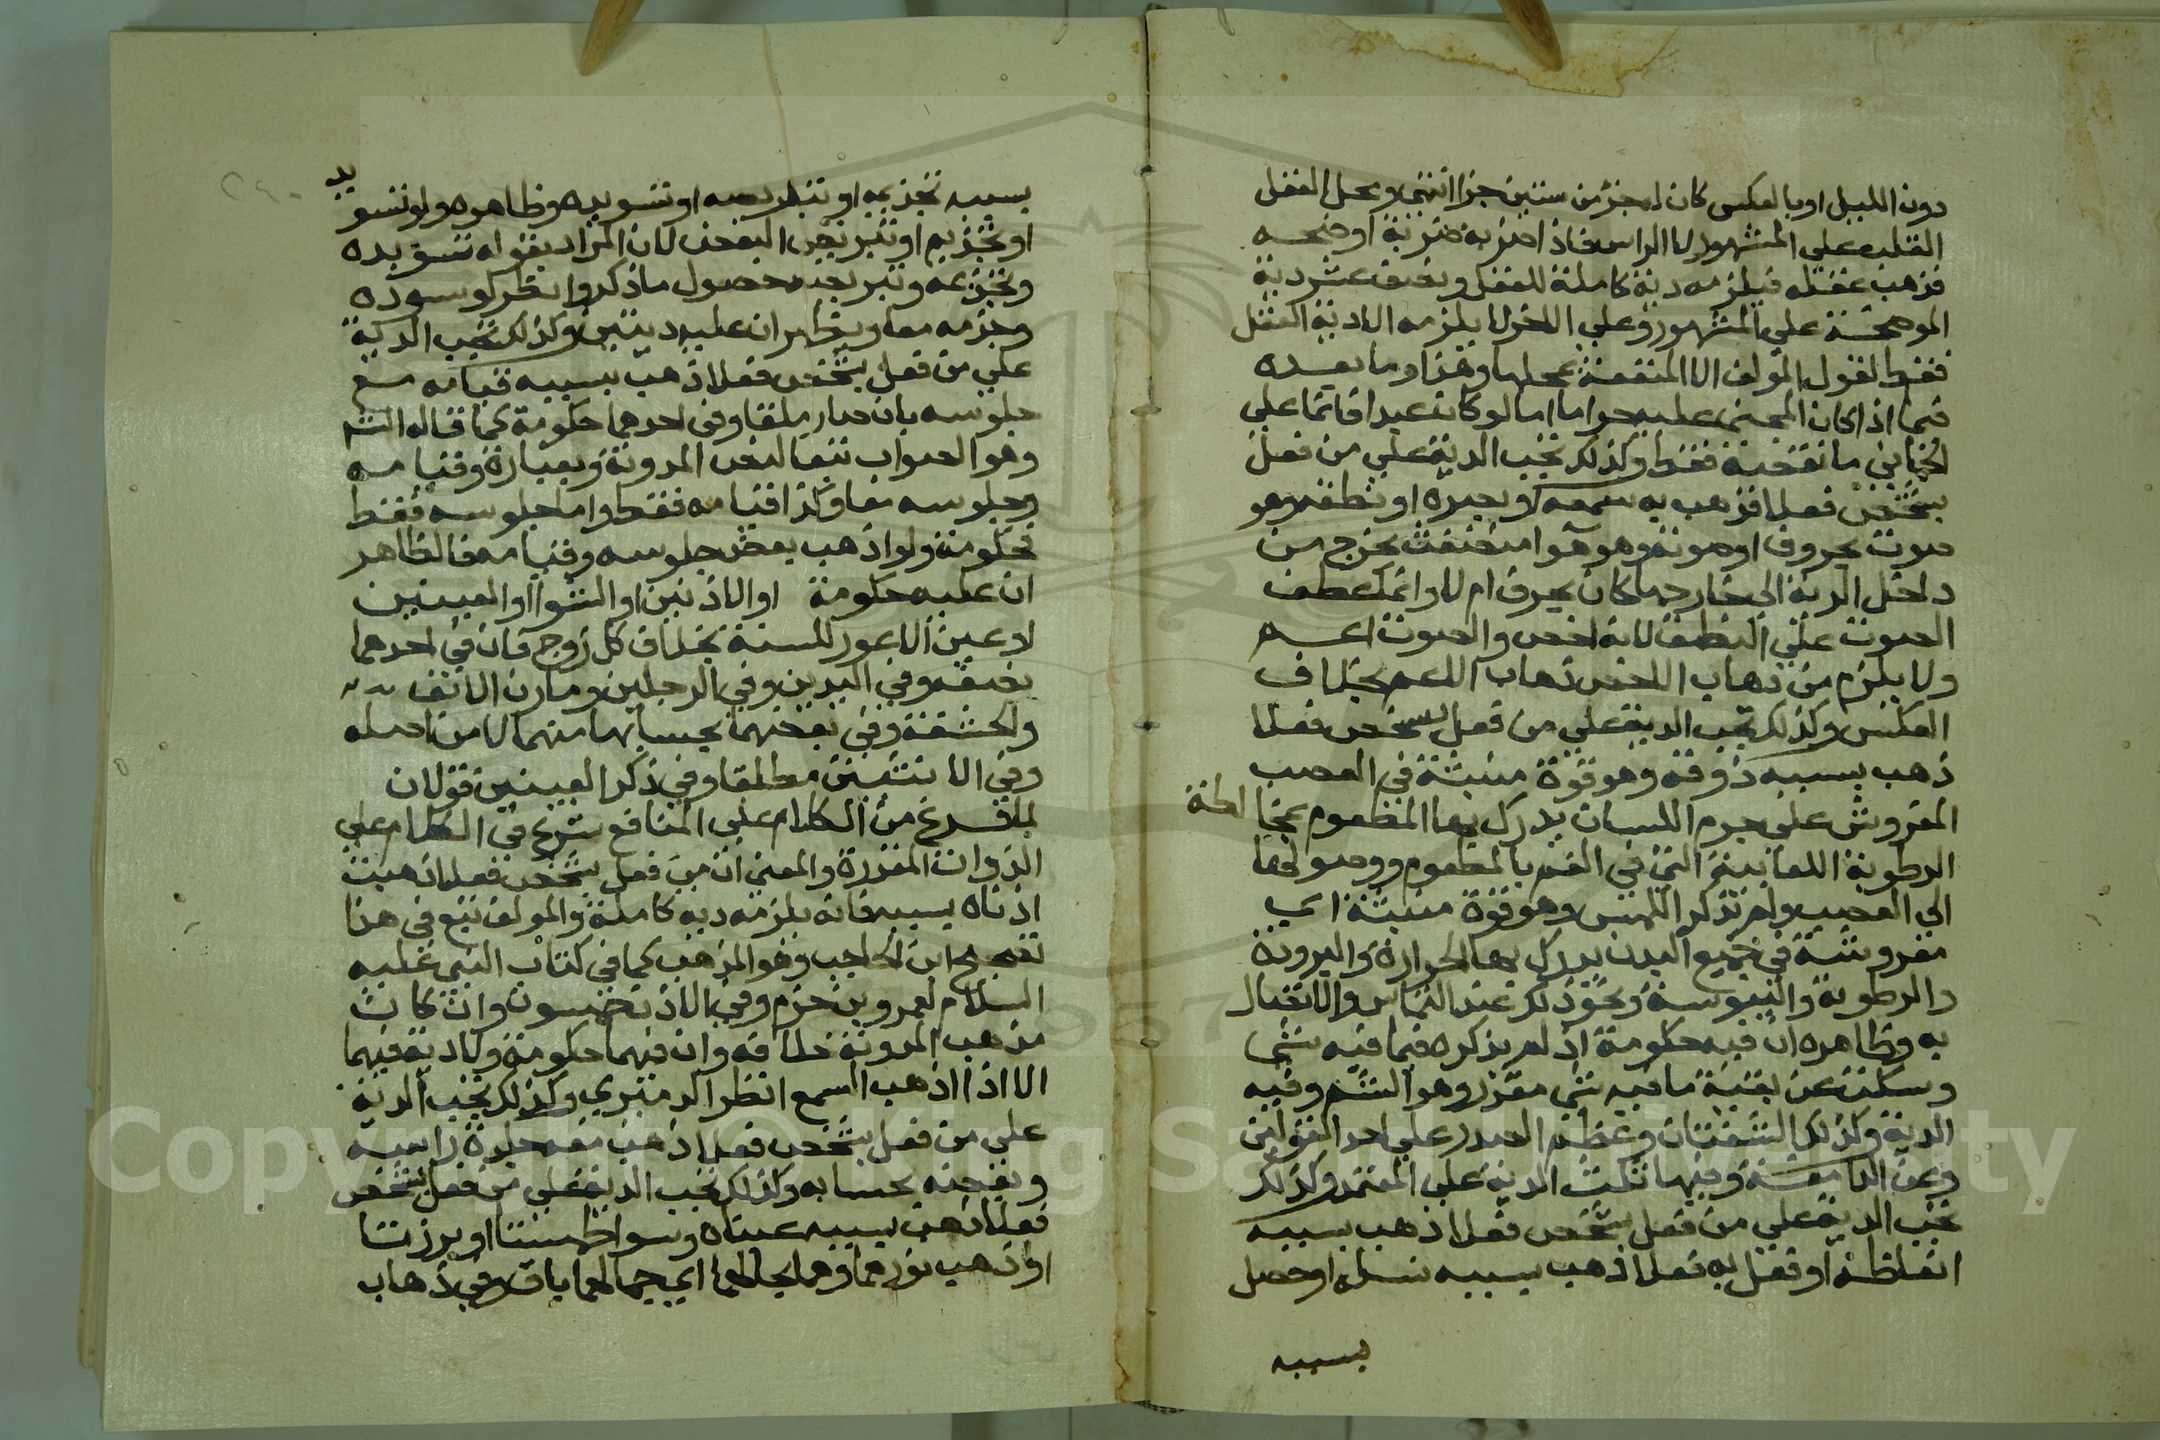 دون الليل او بالعكس كان له جزء من ستين جزا انتهى ومحل العقل
القلب على المشهور لا الراس فاذا ضربه ضربة اوضحه
فذهب عقله فيلزمه دية كاملة للعقل ونصف عشر دية
الموضحة على المشهور وعلى الاخر لا يلزمه الا دية العقل
فقط لقول المؤلف الا المنفعة بمحلها وهذا وما بعده
فيما اذا كان المجني عليه حرا ما اما لو كان عبدا فانما على
الجاني ما نقصه فقط وكذلك تجب الدية على من فعل
بشخص فعلا فذهب به سمعه او بصره او نطقه وهو
صوت بحروف او صوته وهو هوا منضغط يخرج من
داخل الرية الى خارجها كان بحرف ام لا وانما عطف
الصوت على النطق لانه اخص والصوت اعم
ولا يلزم من ذهاب الاخص ذهاب الاعم بخلاف
العكس وكذلك تجب الدية على من فعل بشخص فعلا
ذهب بسببه ذوقه وهو قوة منبثة في العصب
المفروش على جرم اللسان يدرك بها المطعوم بمخالطة
الرطوبة اللعابية التي في الفم بالمطعوم ووصولها
الى العصب ولم يذكر اللمس وهو قوة منبثة اي
مفروشة في جميع البدن يدرك بها الحرارة والبرودة
والرطوبة واليبوسة ونحو ذلك عند التماس والاتصال
به وظاهره ان فيه حكومة اذ لم يذكره فيما فيه شي
وسكت عن بقية ما فيه شي مقرر وهو الشم وفيه
الدية وكذلك الشفتان وعظم الصدر على احد القولين
وعن الدامغة وفيها ثلث الدية على المعتمد وكذلك
تجب الدية على من فعل بشخص فعلا ذهب بسببه
انعاظه او فعل به فعلا ذهب بسببه نسله او حصل
بسببه
بسببه تجذيمه او تبريصه او تسويده وظاهره ولو تسويد
او تجذيم او تبريص البعض لان المراد بقوله تسويده
وتجذيمه وتبريصه حصول ما ذكر وانظر لو سوده
وجذمه معا ويظهر ان عليه ديتين وكذلك تجب الدية
على من فعل بشخص فعلا ذهب بسببه قيامه مع
جلوسه بان صار ملقا وفي احدهما حكومة كما قاله الش
وهو الصواب تبعا لنص المدونة وبعبارة وقيامه
وجلوسه معا وكذا قيامه فقط واما جلوسه فقط
فحكومة ولو اذهب بعض جلوسه وقيامه فالظاهر
ان عليه حكومة او الاذنين او الشوا او العينين
او عين الاعور للسنة بخلاف كل زوج فان في احدهما
نصفه وفي اليدين وفي الرجلين ومارن الانف
والحشفة وفي بعضهما بحسابها منهما لا من اصله
وفي الانثيين مطلقا وفي ذكر العينين قولان
لما فرغ من الكلام على المنافع شرع في الكلام على
الذوات المقررة والمعنى ان من فعل بشخص فعلا ذهبت
اذناه بسببه فانه يلزمه دية كاملة والمولف تبع في هذا
تصحيح ابن الحاجب وهو المذهب كما في كتاب النبي عليه
السلام لعمرو بن حزم وفي الاذن خمسون وان كان
مذهب المدونة خلافه وان فيهما حكومة ولا دية فيهما
الا اذا اذهب السمع انظر الدميري وكذلك تجب الدية
على من فعل بشخص فعلا ذهب معه جلدة راسه
وبعضه بحسابه وكذلك تجب الدية على من فعل بشخص
فعلا ذهب بسببه عيناه وسوا طمستا او برزتا
او اذهب نورهما وهما بحالهما اي جمالهما باق وفي ذهاب